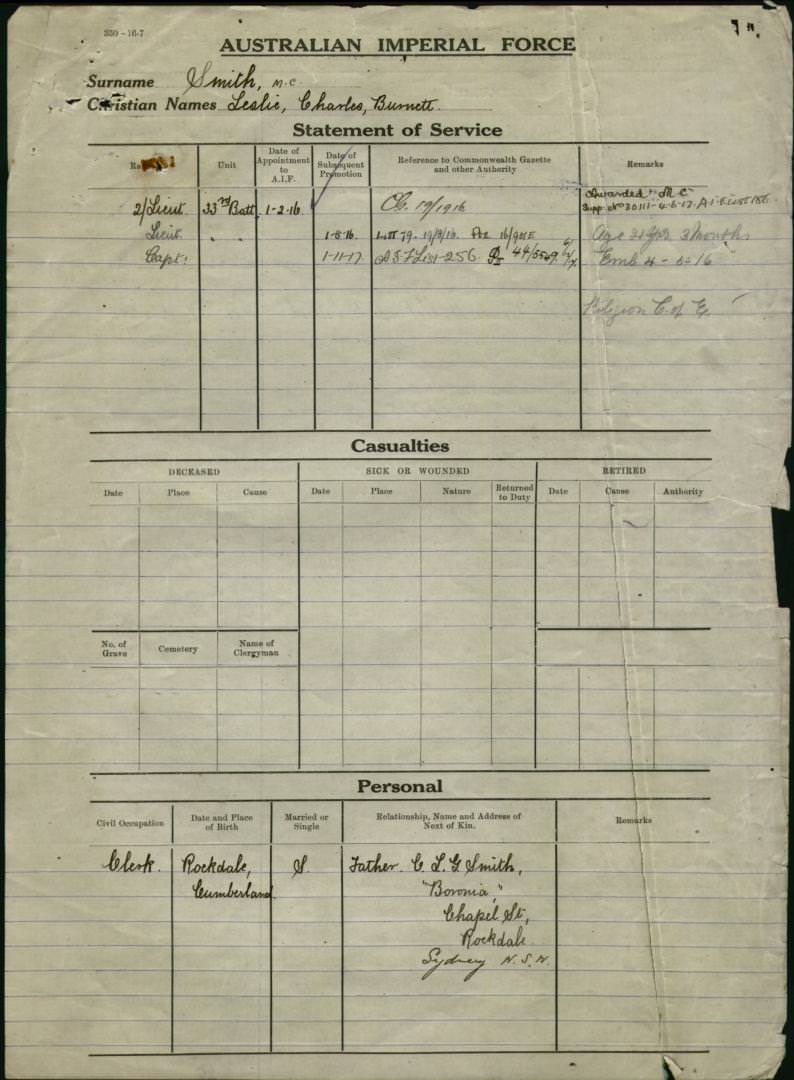 350-16-7
AUSTRALIAN IMPERIAL FORCE
Surname Smith, M.C.
Christian Names Leslie, Charles, Burnett.
Statement of Service
Unit
Date of Appointment to A.I.F.
Date of Subsequent Promotion
Reference to Commonwealth Gazette and other Authority
Remarks
Awarded "M C"
2/Lieut. 33rd Batt. 1-2-16 CG. 19/1916 Supp. No 30111-4-6-17. A.I.F. List
Lieut. " " 1-8-16. List 79. Age 21 yrs 3 Months
Capt. 1-11-17 A I F List 256. Emb 4-5-16
Religion C. of E.
Casualties
DECEASED
SICK OR WOUNDED
RETIRED
Date Place Cause
Date Place Nature Returned to Duty
Date Cause Authority
No. of Grave
Cemetery
Name of Clergyman
Personal
Civil Occupation
Date and Place of Birth
Married or Single
Relationship, Name and Address of Next of Kin.
Remarks
Clerk. Rockdale, S. Father. C L. G Smith,
Cumberland. "Boronia,"
Chapel St,
Rockdale.
Sydney N.S.W.